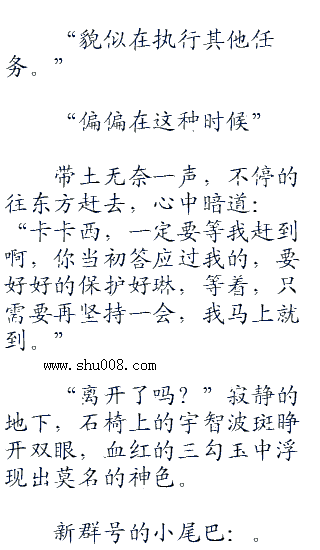 “貌似在执行其他任
务。”
“偏偏在这种时候”
带土无奈一声，不停的
往东方赶去，心中暗道：
“卡卡西，一定要等我赶到
啊，你当初答应过我的，要
好好的保护好琳，等着，只
需要再坚持一会，我马上就
到。”
www.shu008.com
“离开了吗？”寂静的
地下，石椅上的宇智波斑睁
开双眼，血红的三勾玉中浮
现出莫名的神色。
新群号的小尾巴：。